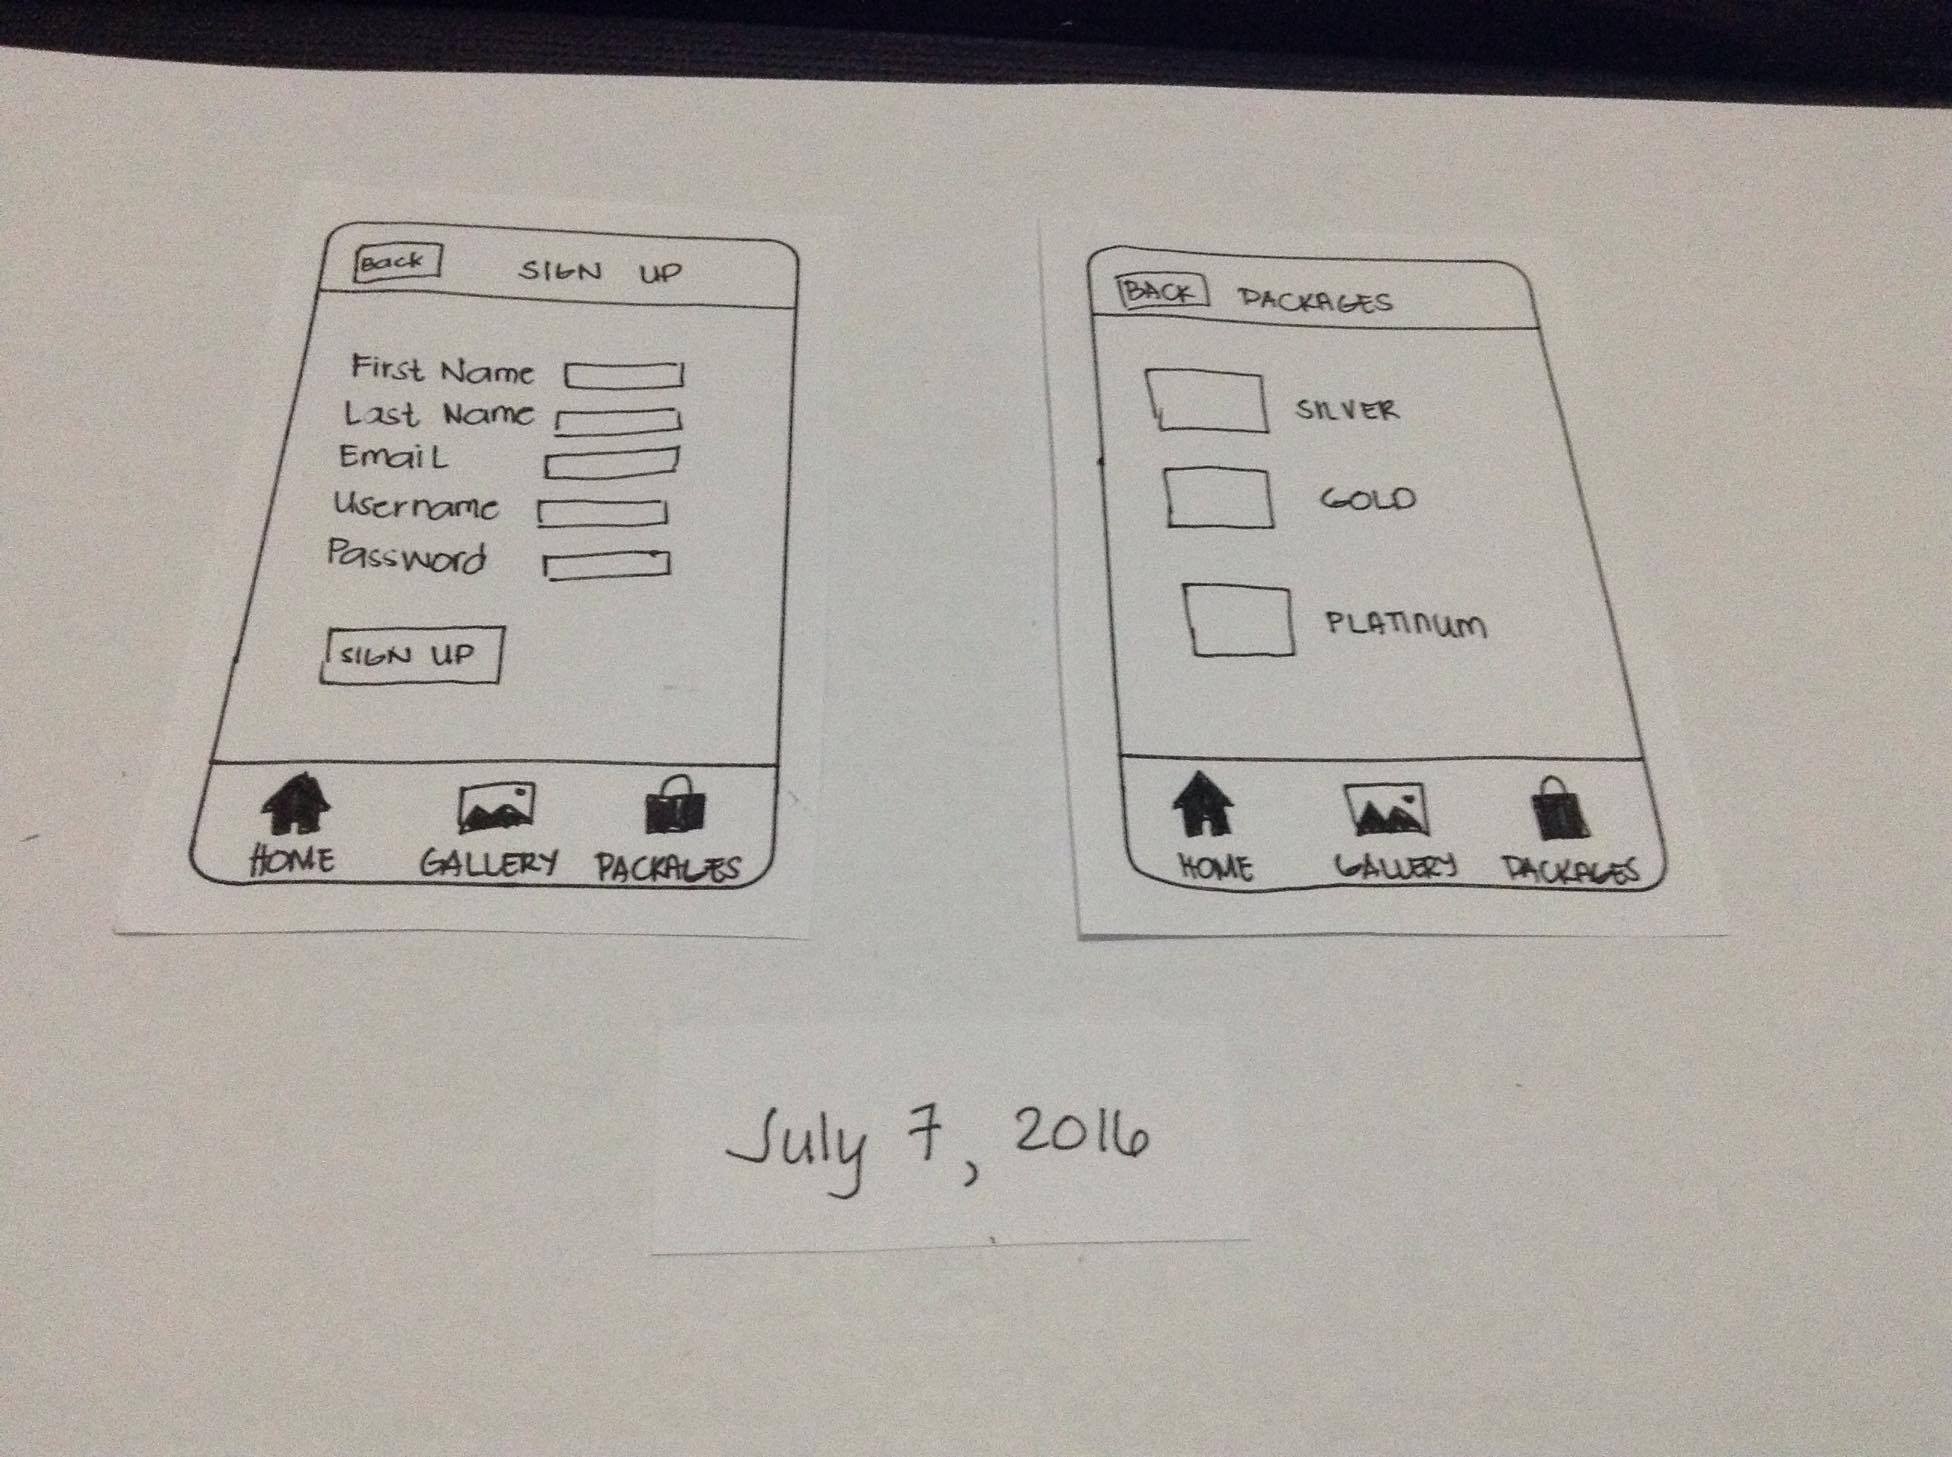 Back SIGN UP
First Name
Last Name
Email
Username
Password
SIGN UP
HOME GALLERY PACKAGES
BACK PACKAGES
SILVER
GOLD
PLATINUM
HOME GALLERY PACKAGES
July 7, 2016